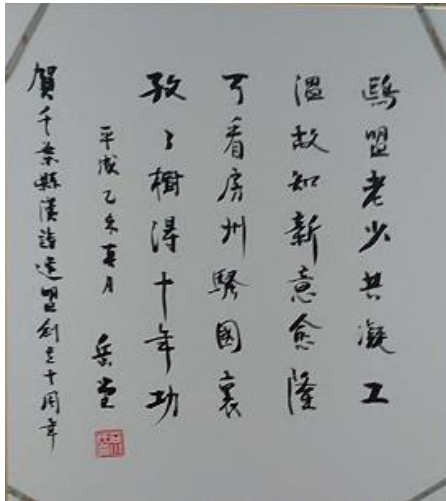 鷗盟老少共凝工
温故知新意愈隆
可看房州騷國裏
孜々樹得十年功
平成乙亥月 岳堂
賀千葉縣漢詩連盟創立十周年